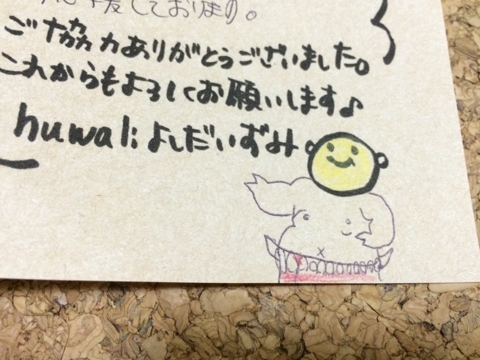 応援しております。
ご協力ありがとうございました。
これからもよろしくお願いします♪
huwaliよしだいずみ